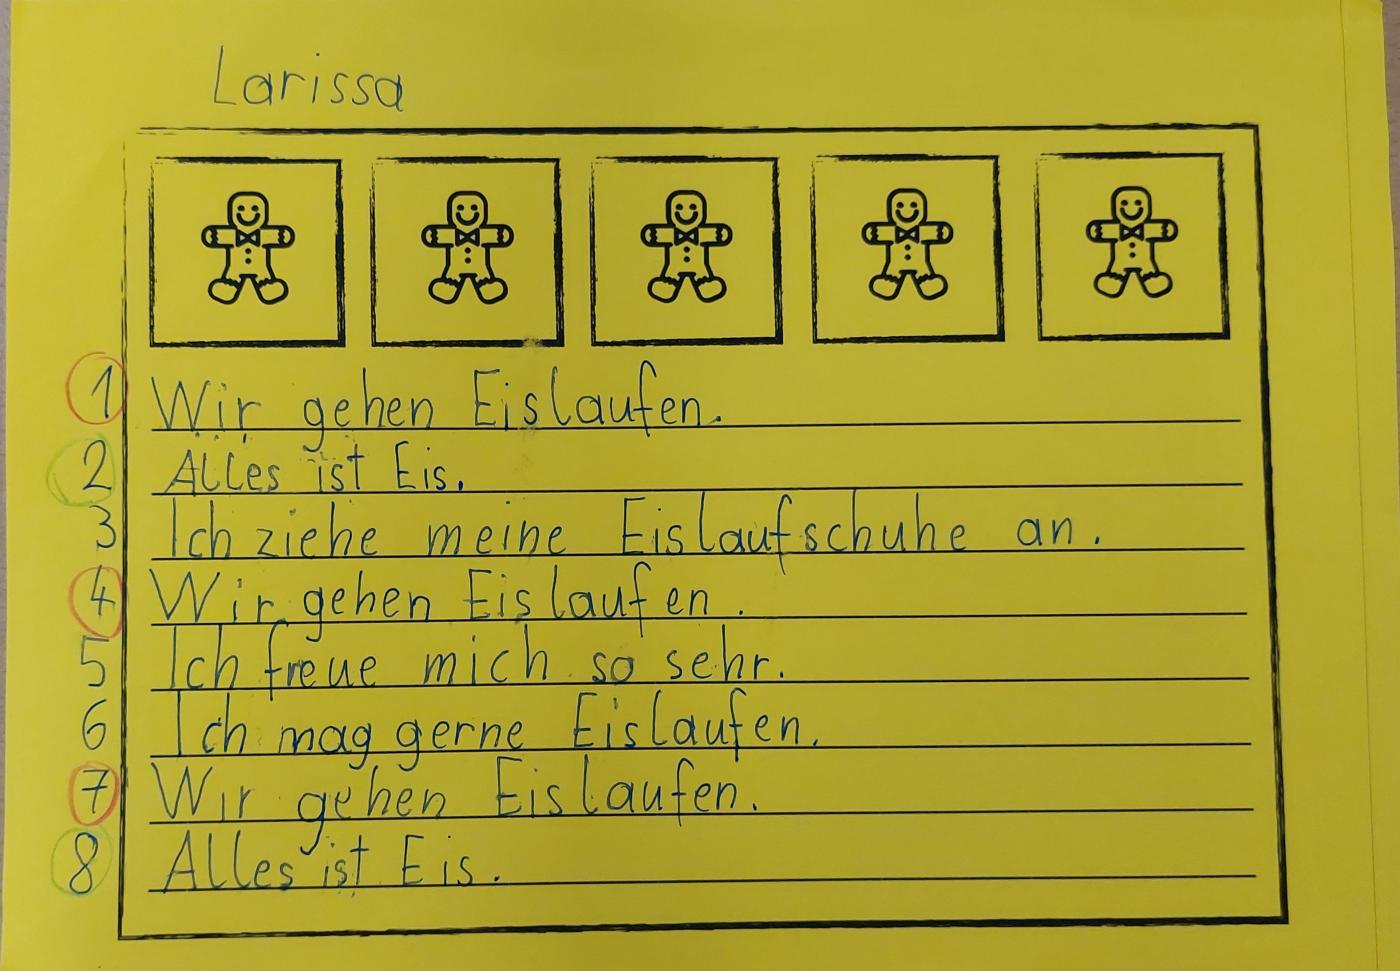 Larissa
1 Wir gehen Eislaufen.
2 Alles ist Eis.
3 Ich ziehe meine Eislaufschuhe an.
4 Wir gehen Eislaufen.
5 Ich freue mich so sehr.
6 Ich mag gerne Eislaufen.
7 Wir gehen Eislaufen.
8 Alles ist Eis.